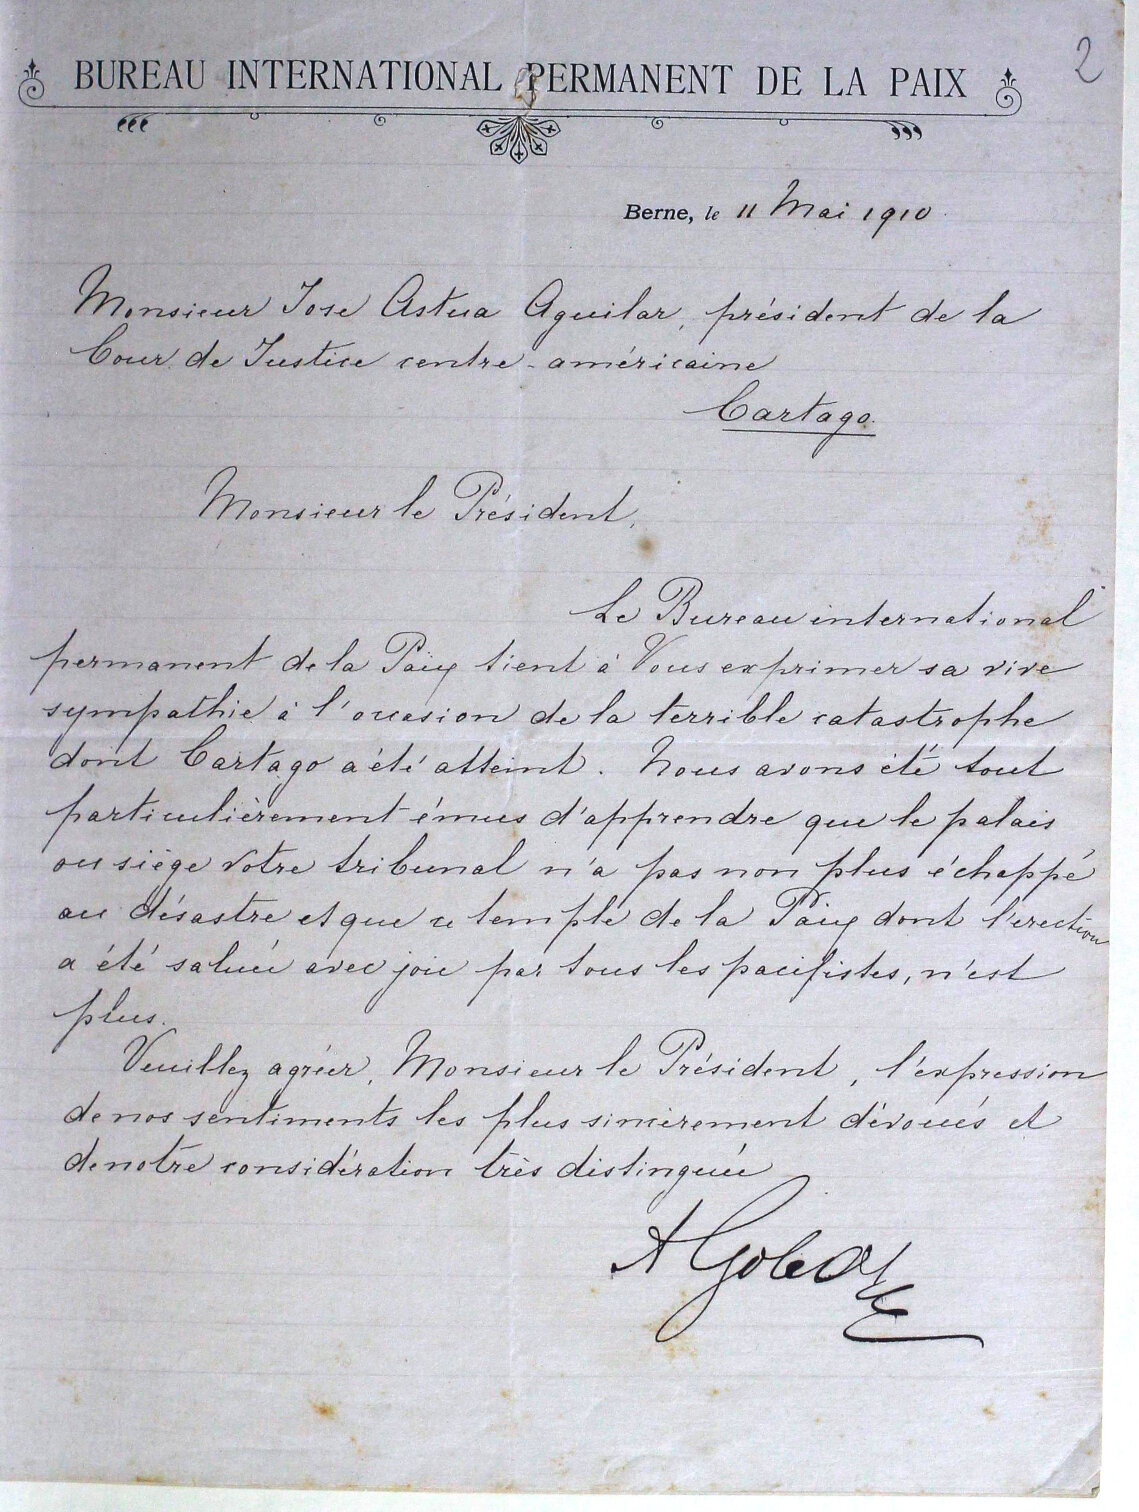 2
BUREAU INTERNATIONAL PERMANENT DE LA PAIX
Berne, le 11 Mai 1910
Monsieur Jose Astua Aguilar, président de la
Cour de Justice centre-américaine
Cartago.
Monsieur le Président,
Le Bureau international
permanent de la Paix tient à Vous exprimer sa vive
sympathie à l'occasion de la terrible catastrophe
dont Cartago a été atteint. Nous avons été tout
particulièrement émus d'apprendre que le palais
ou siège votre tribunal n'a pas non plus échappé
au désastre et que ce temple de la Paix dont l'erection
a été saluée avec joie par tous les pacifistes, n'est
plus.
Veuillez agréer, Monsieur le Président, l'expression
de nos sentiments les plus sincèrement dévoués et
de notre considération très distinguée
A Gobat